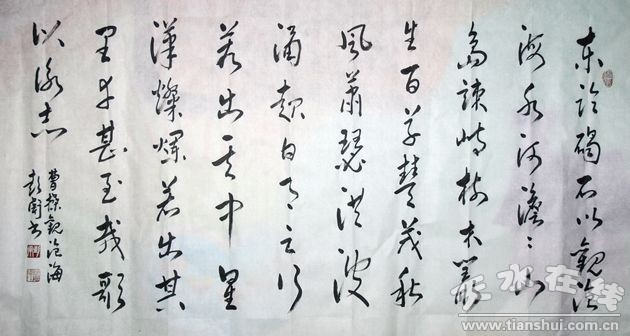 東临碣石以觀沧
海水何澹〻山
岛竦峙树木叢
生百草豐茂秋
風萧瑟洪波
涌起日月之行
若出其中星
漢燦爛若出其
里幸甚至哉歌
以詠志
曹操觀沧海
书
天水在线
www.tianshui.com.cn